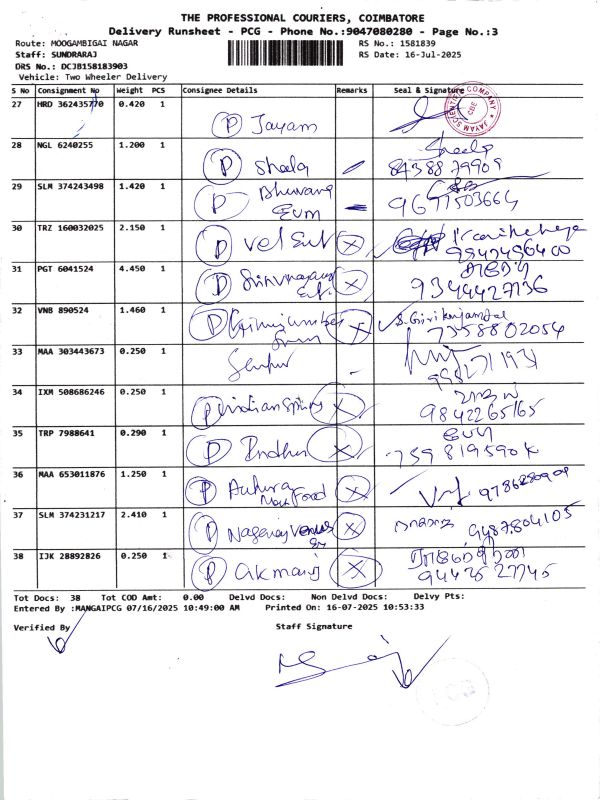 THE PROFESSIONAL COURIERS, COIMBATORE
Delivery Runsheet - PCG - Phone No.:9047080280 - Page No.:3
Route: MOOGAMBIGAI NAGAR
RS No.: 1581839
Staff: SUNDRARAJ
RS Date: 16-Jul-2025
DRS No.: DCJB158183903
Vehicle: Two Wheeler Delivery
S No Consignment No Weight PCS Consignee Details Remarks Seal & Signature
27 HRD 362435770 0.420 1
P Jayam
JAYAM SCIENTIFIC COMPANY CBE
28 NGL 6240255 1.200 1
P Sheela
Sheela
84388 79909
29 SLM 374243498 1.420 1
P Bhuvana
9677503664
30 TRZ 160032025 2.150 1
P Vel
31 PGT 6041524 4.450 1
P
9344427136
32 VNB 890524 1.460 1
P
7358802054
33 MAA 303443673 0.250 1
34 IXM 508686246 0.250 1
P Indian Spring
9842265165
35 TRP 7988641 0.290 1
P Indhu
36 MAA 653011876 1.250 1
P Food
37 SLM 374231217 2.410 1
P Nagaraj
9487804105
38 IJK 28892826 0.250 1
P
Tot Docs: 38 Tot COD Amt: 0.00 Delvd Docs: Non Delvd Docs: Delvy Pts:
Entered By :MANGAIPCG 07/16/2025 10:49:00 AM Printed On: 16-07-2025 10:53:33
Verified By
Staff Signature